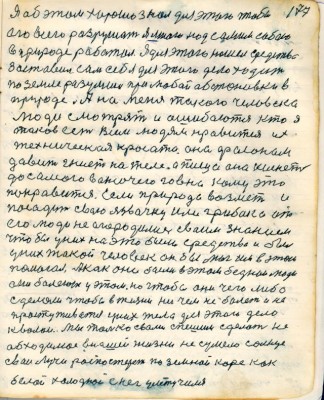 177
Я об этом хорошо знал для этого чтобы
его всего разрушат я много над самим собою
в природе работал. Я для этого нашел средства
Заставил сам себя для этого дела ходить
по земле разутым при любой обстановки в
природе. А на меня такого человека
люди смотрят и ошибаются кто я
таков есть Всем людям нравится их
техническая она
давит гниет на теле, а пища она кишеть
до самого говна кому это
понравится. Если природа возьмет и
посадит свою язвочку или грибака от
его люди не огородились своим знанием
чтобы у них на это были средства и был
у них такой человек он бы мог им в этом
помогал. А как они были в этом бедном люди
они болеют у этом, но чтобы они чего либо
сделали чтобы в жизни не чем не болет и не
простуживется у них тела для этого дело
Мы только сами спешим сделат не
обходимое в нашей жизни не сумело солнце
свои лучи распостирт по земной коре как
белой холодной снег